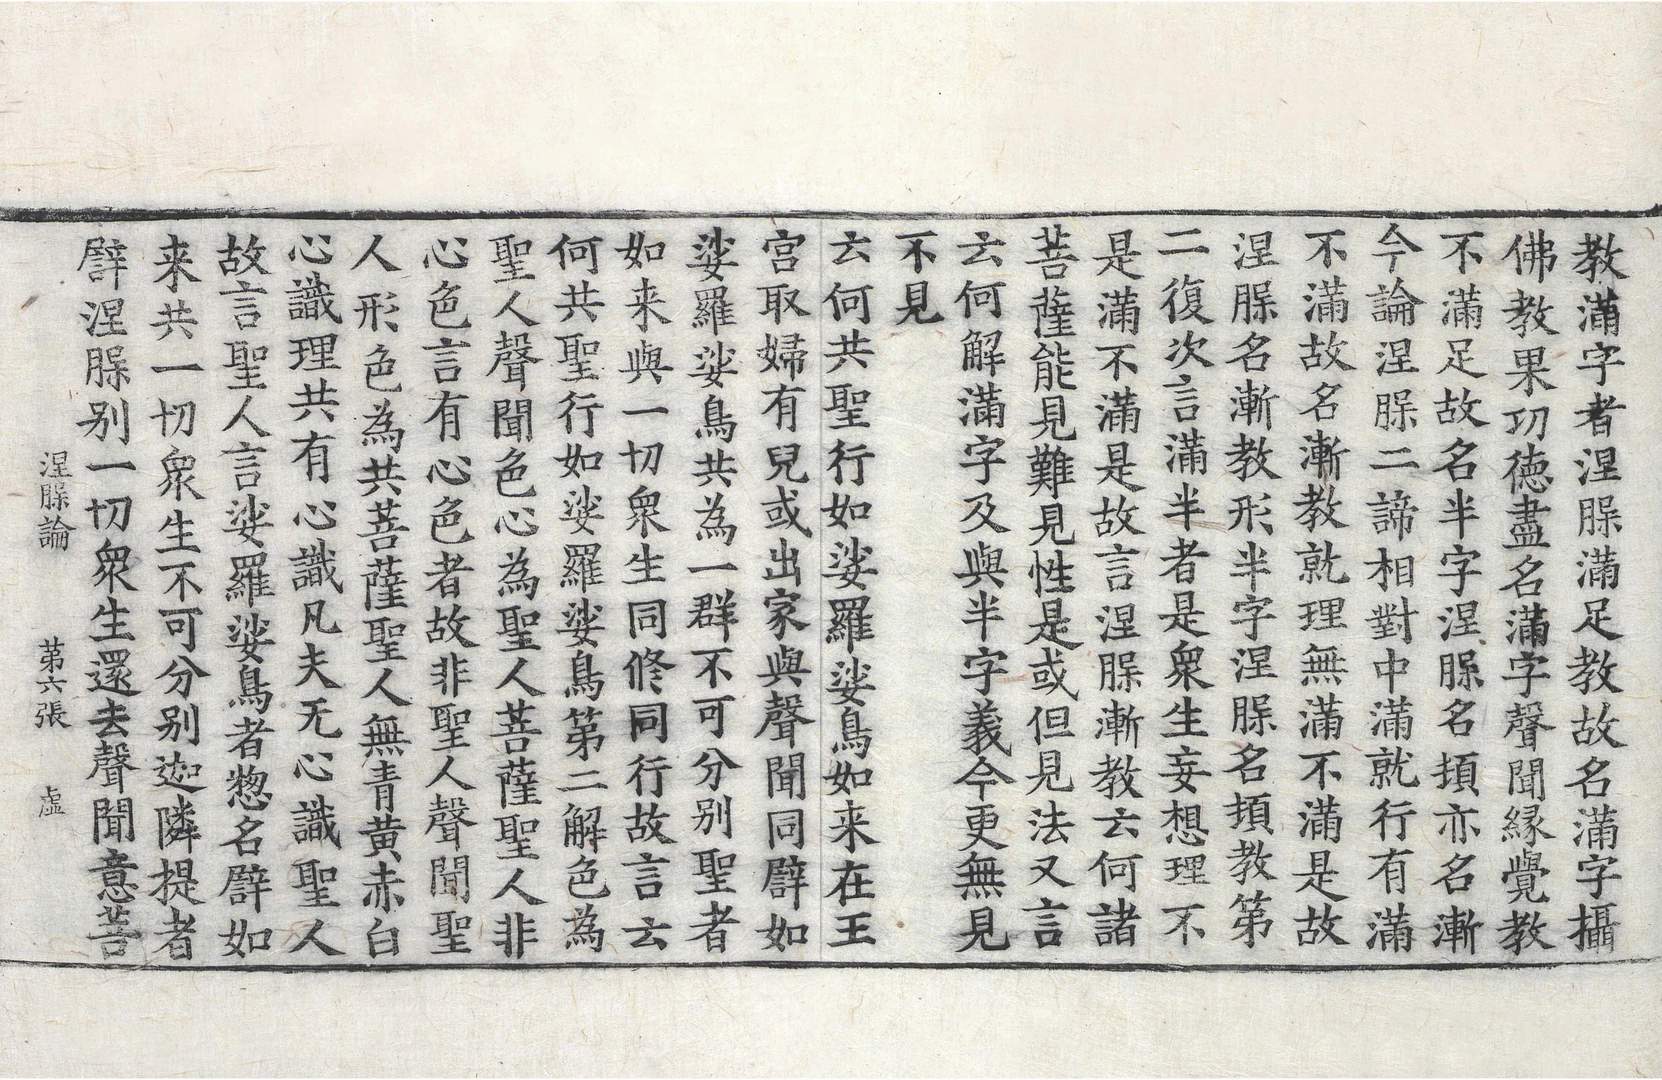 教滿字者涅䏶滿足教故名滿字攝
佛教果㓛德盡名滿字聲聞緣覺教
不滿足故名半字涅䏶名頓亦名漸
今論涅䏶二諦相對中滿就行有滿
不滿故名漸教就理無滿不滿是故
涅䏶名漸教形半字涅䏶名頓教第
二復次言滿半者是衆生妄想理不
是滿不滿是故言涅䏶漸教云何諸
菩薩能見難見性是或但見法又言
云何解滿字及與半字義今更無見
不見
云何共聖行如娑羅娑鳥如来在王
宫取婦有兒或出家與聲聞同譬如
娑羅娑鳥共為一群不可分别聖者
如来與一切衆生同修同行故言云
何共聖行如娑羅娑鳥第二解色為
聖人聲聞色心為聖人菩薩聖人非
心色言有心色者故非聖人聲聞聖
人形色為共菩薩聖人無青黄赤白
心識理共有心識凡夫无心識聖人
故言聖人言娑羅娑鳥者惣名譬如
来共一切衆生不可分别迦隣提者
譬涅䏶别一切衆生還去聲聞意菩
涅䏶論 第六張 虛